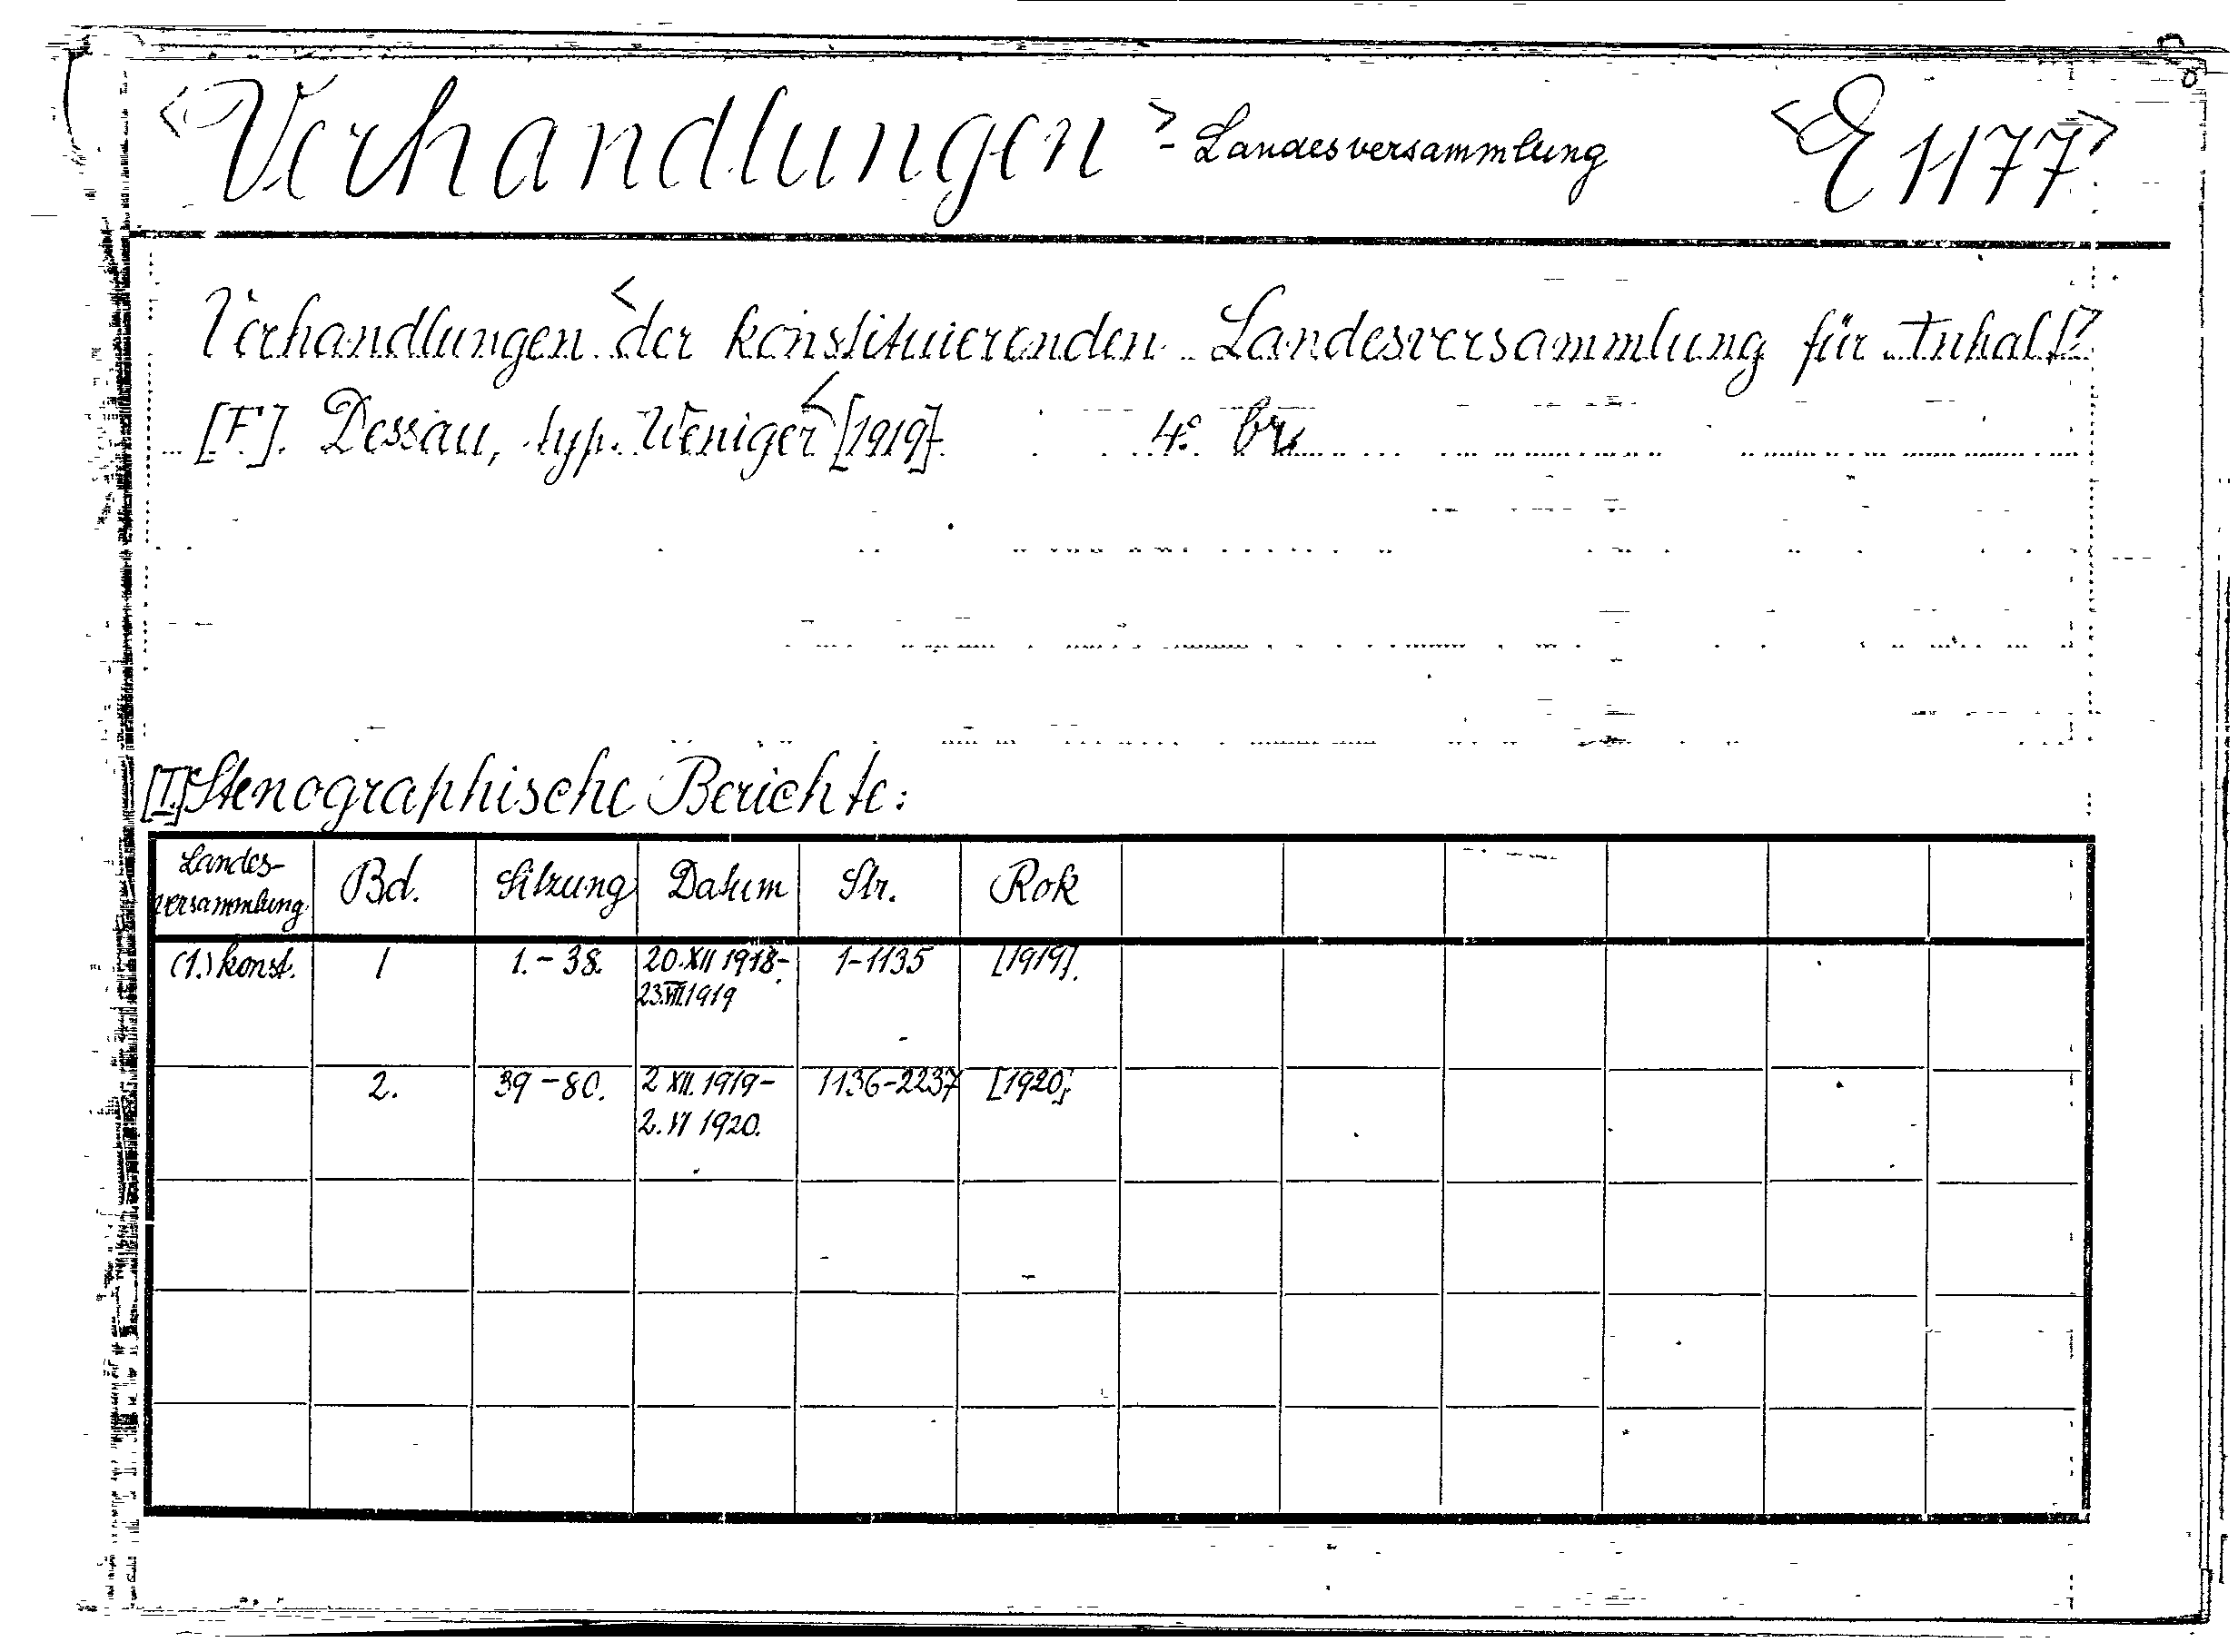 <Verhandlungen> - Landesversammlung <E 1177>
Verhandlungen <der konstituierenden Landesversammlung für Anhalt>
[F]. Dessau, typ. Weniger [1919]. 4° br.
[I.] Stenographische Berichte:
Landes-versammlung Bd. Sitzung Datum Str. Rok
(1.) konst. 1 1.-38. 20.XII 1918- 1-1135 [1919].
23.VII.1919
2. 39-80. 2 XII. 1919- 1136-2237 [1920].
2. VI 1920.